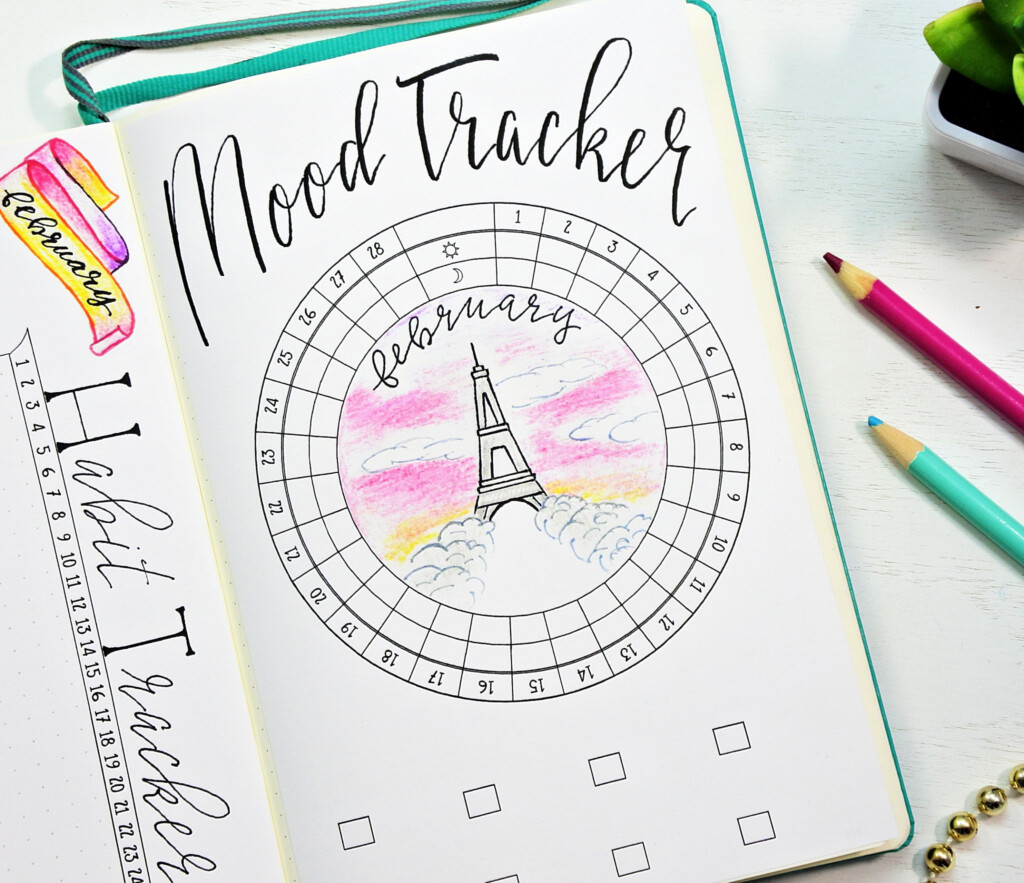 february
Habit Tracker
1
2
3
4
5
6
7
8
9
10
11
12
13
14
15
16
17
18
19
20
21
22
23
24
Mood Tracker
1
2
3
4
5
6
7
8
9
10
11
12
13
14
15
16
17
18
19
20
21
22
23
24
25
26
27
28
february